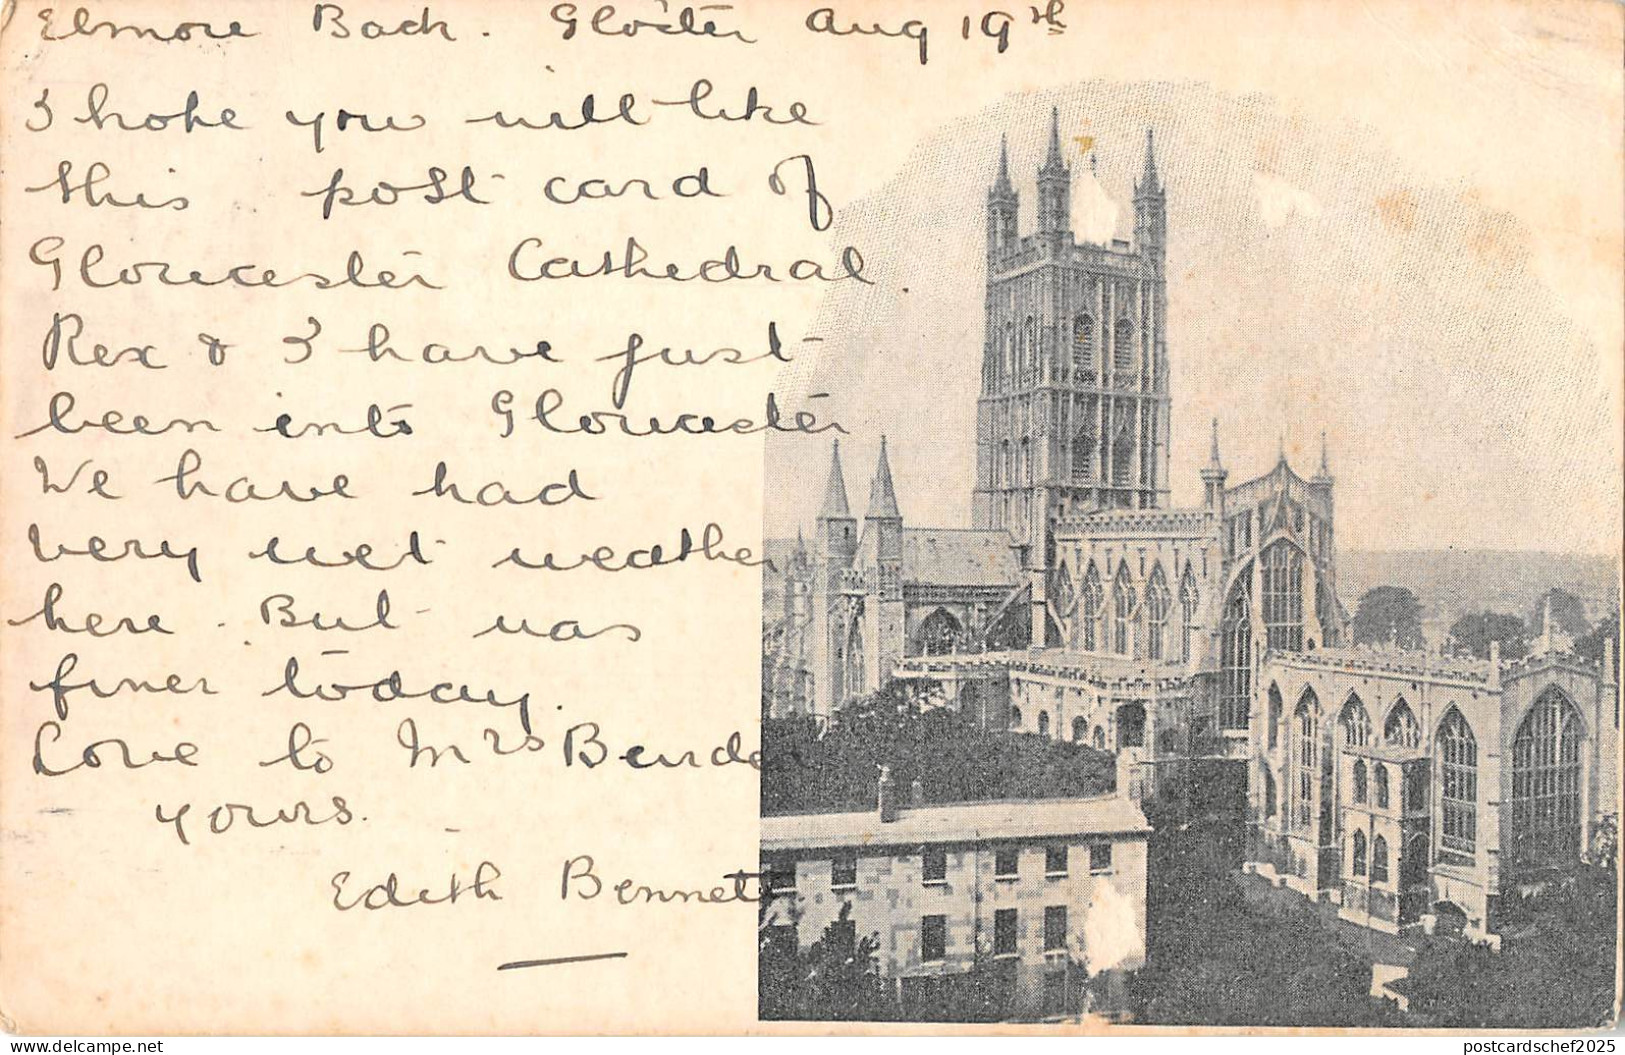 Elmore Back. Glo'ster Aug 19th
I hope you will like
this post card of
Gloucester Cathedral.
Rex & I have just
been into Gloucester
We have had
very wet weather
here. But was
finer today.
Love to Mrs
yours.
Edith Bennett
delcampe.net
postcardschef2025